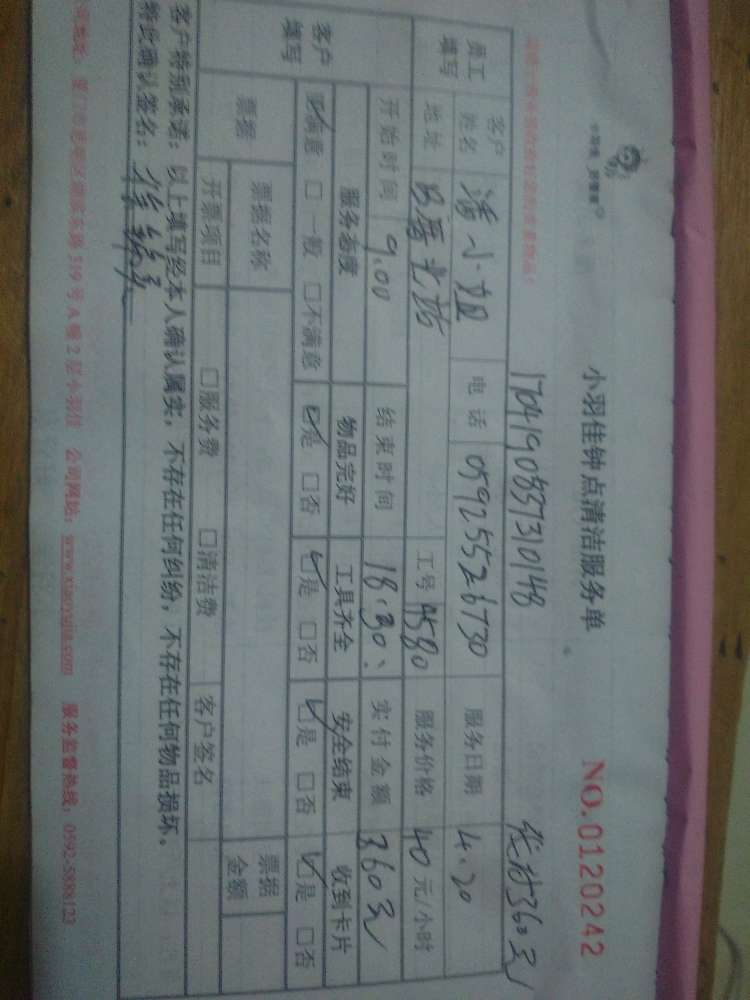 小羽佳钟点清洁服务单
NO.0120242
1704190837310148
员工填写
客户姓名 潘小姐 电话 05925526730 服务日期 4.20
地址 工号 A580 服务价格 40元/小时
客户填写
开始时间 9.00 结束时间 18.30 实付金额 360元
服务态度 物品完好 工具齐全 安全结束 收到卡片
☑满意 □一般 □不满意 ☑是 □否 ☑是 □否 ☑是 □否 ☑是 □否
票据 票据名称 票据金额
开票项目 □服务费 □清洁费 客户签名
客户特别承诺：以上填写经本人确认属实，不存在任何纠纷，不存在任何物品损坏。
特此确认签名：
319号A幢2层小羽佳 公司网站：www.xiaoyujia.com 服务监督热线：0592-5888123